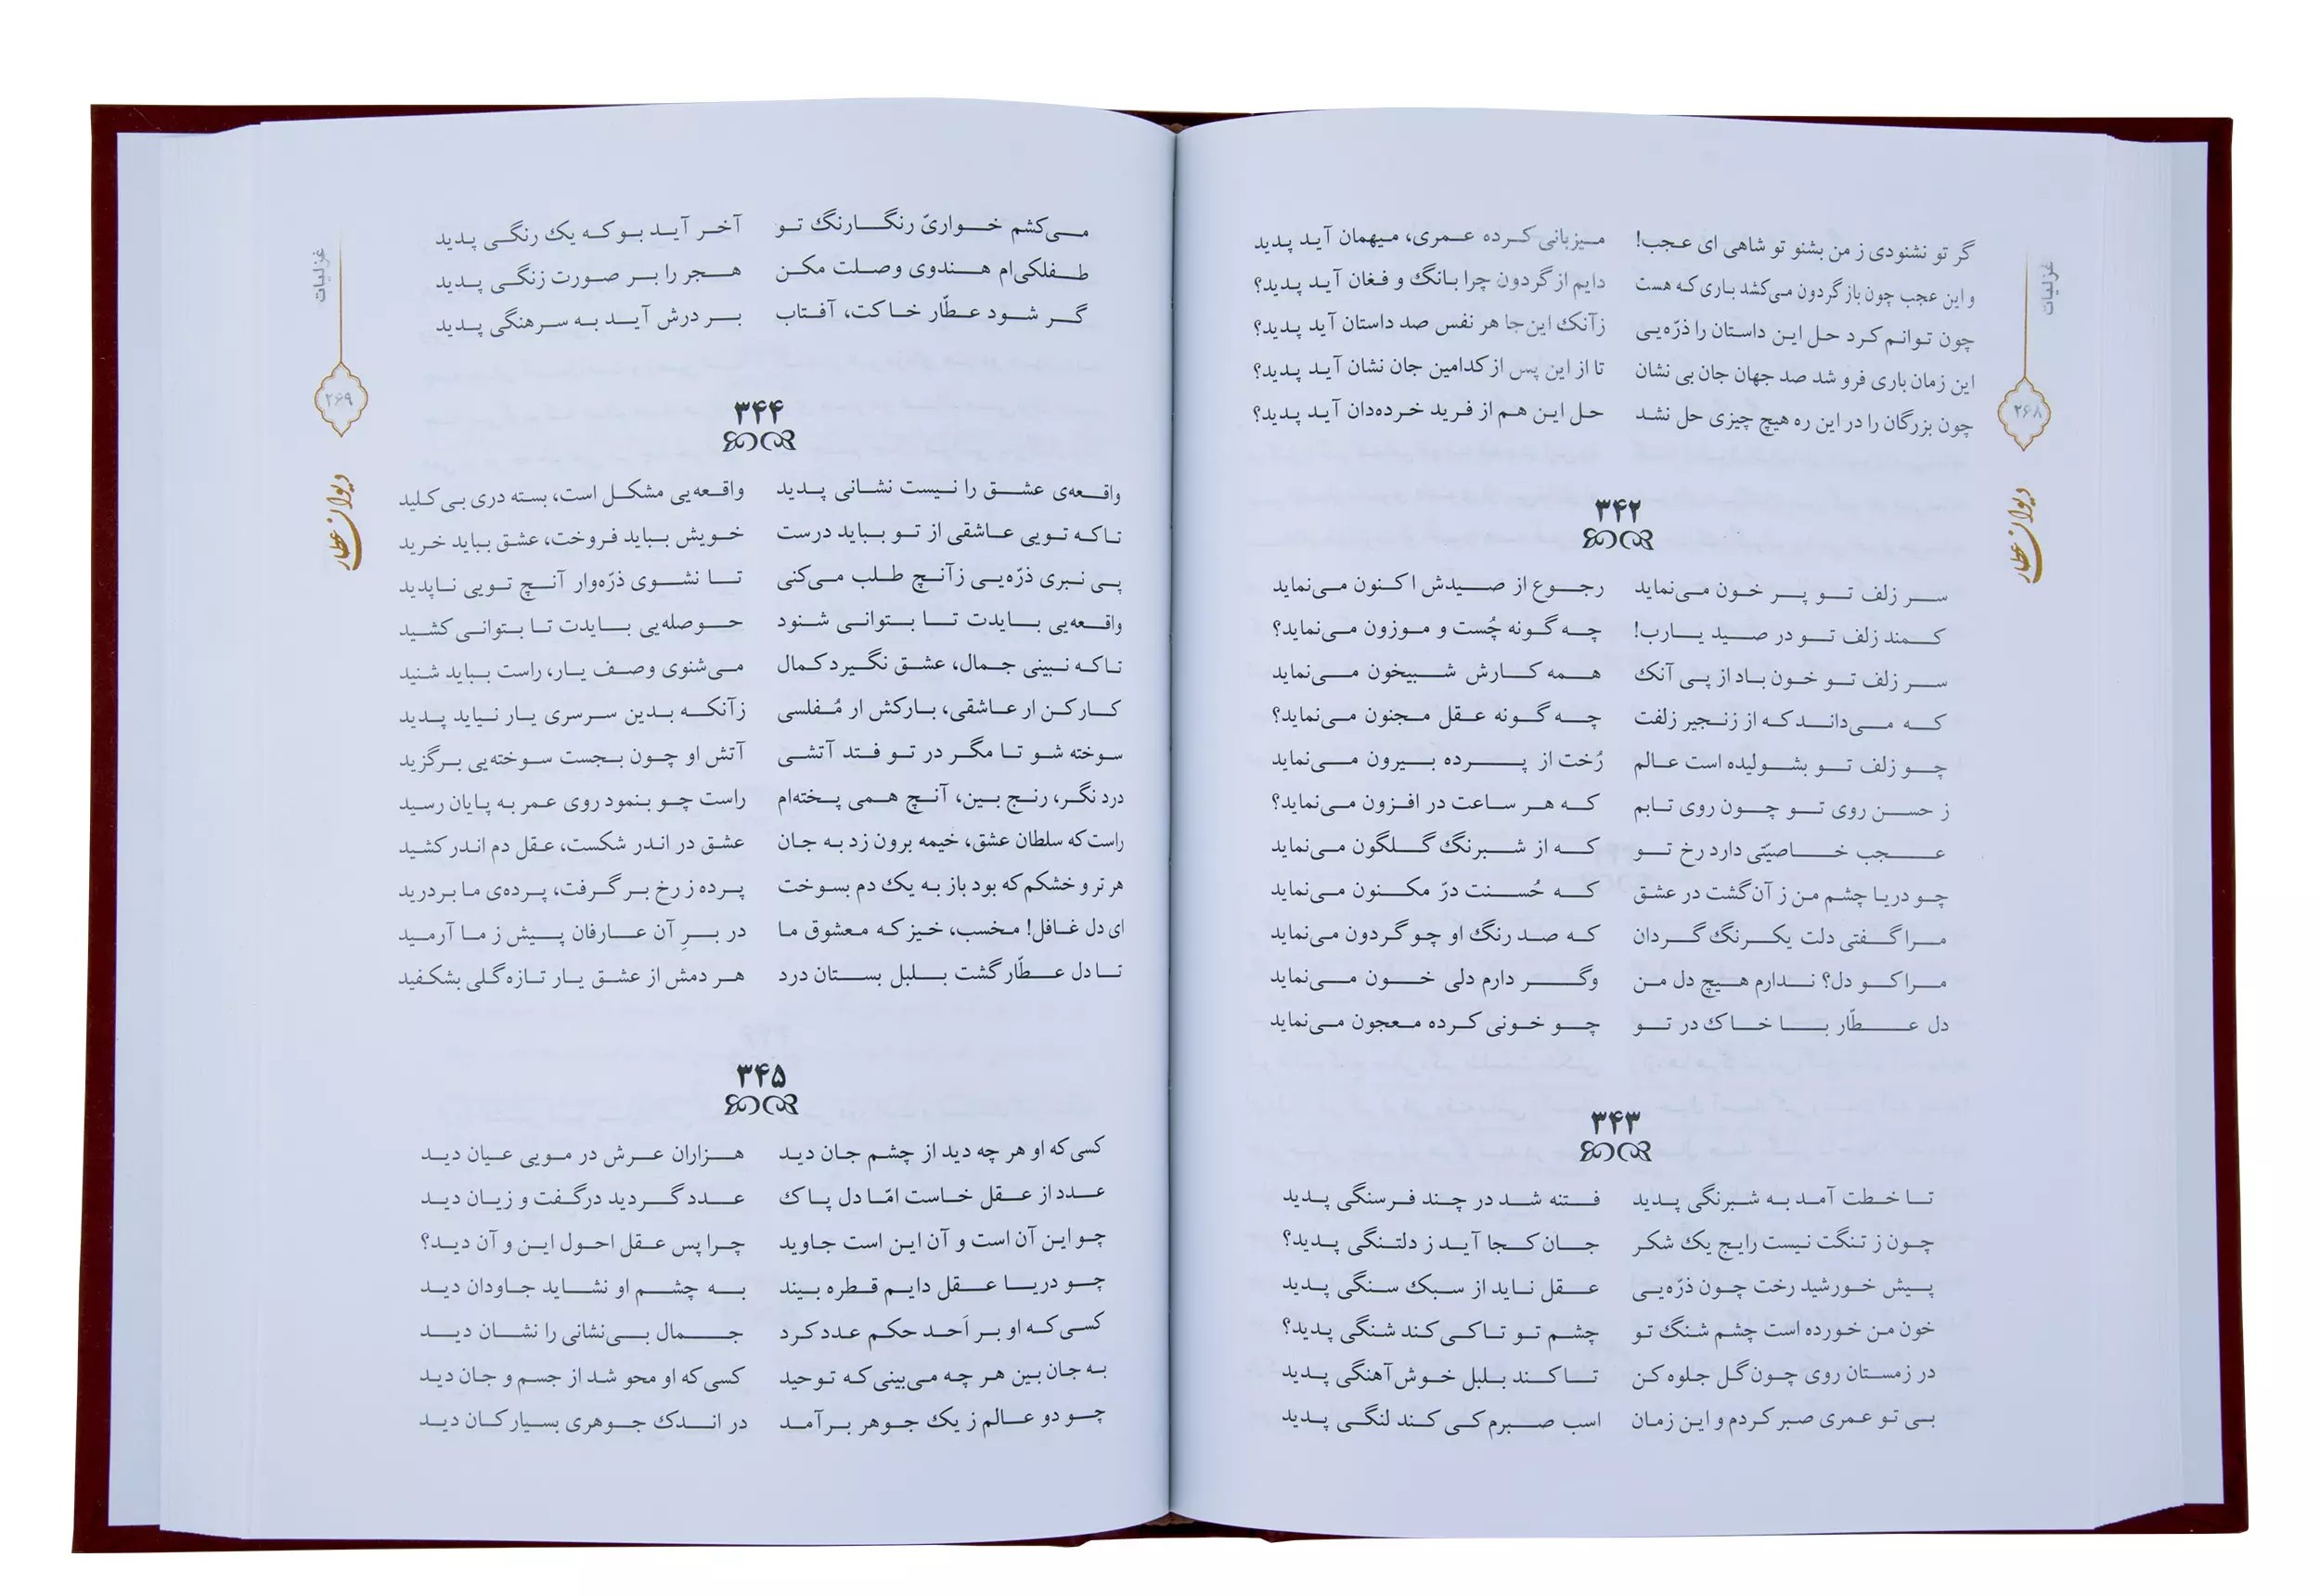 غزلیات
۲۶۸
دیوان عطار
گر تو نشنودی ز من بشنو تو شاهی ای عجب! میزبانی کرده عمری، میهمان آید پدید
و این عجب چون بازگردون می‌کشد باری که هست دایم از گردون چرا بانگ و فغان آید پدید؟
چون توانم کرد حل این داستان را ذرّه‌یی زآنک این‌جا هر نفس صد داستان آید پدید؟
این زمان باری فرو شد صد جهان جان بی نشان تا از این پس از کدامین جان نشان آید پدید؟
چون بزرگان را در این ره هیچ چیزی حل نشد حل این هم از فرید خرده‌دان آید پدید؟
۳۴۲
سر زلف تو پر خون می‌نماید رجوع از صیدش اکنون می‌نماید
کمند زلف تو در صید یارب! چه گونه چُست و موزون می‌نماید؟
سر زلف تو خون باد از پی آنک همه کارش شبیخون می‌نماید
که می‌داند که از زنجیر زلفت چه گونه عقل مجنون می‌نماید؟
چو زلف تو بشولیده است عالم رُخت از پرده بیرون می‌نماید
ز حسن روی تو چون روی تابم که هر ساعت در افزون می‌نماید؟
عجب خاصیّتی دارد رخ تو که از شبرنگ گلگون می‌نماید
چو دریا چشم من ز آن گشت در عشق که حُسنت درّ مکنون می‌نماید
مرا گفتی دلت یکرنگ گردان که صد رنگ او چو گردون می‌نماید
مرا کو دل؟ ندارم هیچ دل من وگر دارم دلی خون می‌نماید
دل عطّار با خاک در تو چو خونی کرده معجون می‌نماید
۳۴۳
تا خطت آمد به شبرنگی پدید فتنه شد در چند فرسنگی پدید
چون ز تنگت نیست رایج یک شکر جان کجا آید ز دلتنگی پدید؟
پیش خورشید رخت چون ذرّه‌یی عقل ناید از سبک سنگی پدید
خون من خورده است چشم شنگ تو چشم تو تا کی کند شنگی پدید؟
در زمستان روی چون گل جلوه کن تا کند بلبل خوش آهنگی پدید
بی تو عمری صبر کردم و این زمان اسب صبرم کی کند لنگی پدید
غزلیات
۲۶۹
دیوان عطار
می‌کشم خواریّ رنگارنگ تو آخر آید بو که یک رنگی پدید
طفلکی‌ام هندوی وصلت مکن هجر را بر صورت زنگی پدید
گر شود عطّار خاکت، آفتاب بر درش آید به سرهنگی پدید
۳۴۴
واقعه‌ی عشق را نیست نشانی پدید واقعه‌یی مشکل است، بسته دری بی کلید
تا که تویی عاشقی از تو بیاید درست خویش بباید فروخت، عشق بباید خرید
پی نبری ذرّه‌یی زآنچ طلب می‌کنی تا نشوی ذرّه‌وار آنچ تویی ناپدید
واقعه‌یی بایدت تا بتوانی شنود حوصله‌یی بایدت تا بتوانی کشید
تا که نبینی جمال، عشق نگیرد کمال می‌شنوی وصف یار، راست بباید شنید
کار کن ار عاشقی، بارکش ار مُفلسی زآنکه بدین سرسری یار نیاید پدید
سوخته شو تا مگر در تو فتد آتشی آتش او چون بجست سوخته‌یی برگزید
درد نگر، رنج بین، آنچ همی پخته‌ام راست چو بنمود روی عمر به پایان رسید
راست که سلطان عشق، خیمه برون زد به جان عشق در اندر شکست، عقل دم اندر کشید
هر تر و خشکم که بود باز به یک دم بسوخت پرده ز رخ بر گرفت، پرده‌ی ما بردرید
ای دل غافل! مخسب، خیز که معشوق ما در برِ آن عارفان پیش ز ما آرمید
تا دل عطّار گشت بلبل بستان درد هر دمش از عشق یار تازه گلی بشکفید
۳۴۵
کسی که او هر چه دید از چشم جان دید هزاران عرش در مویی عیان دید
عدد از عقل خاست امّا دل پاک عدد گردید درگفت و زبان دید
چو این آن است و آن این است جاوید چرا پس عقل احول این و آن دید؟
چو دریا عقل دایم قطره بیند به چشم او نشاید جاودان دید
کسی که او بر اَحد حکم عدد کرد جمال بی‌نشانی را نشان دید
به جان بین هر چه می‌بینی که توحید کسی که او محو شد از جسم و جان دید
چو دو عالم ز یک جوهر برآمد در اندک جوهری بسیار کان دید